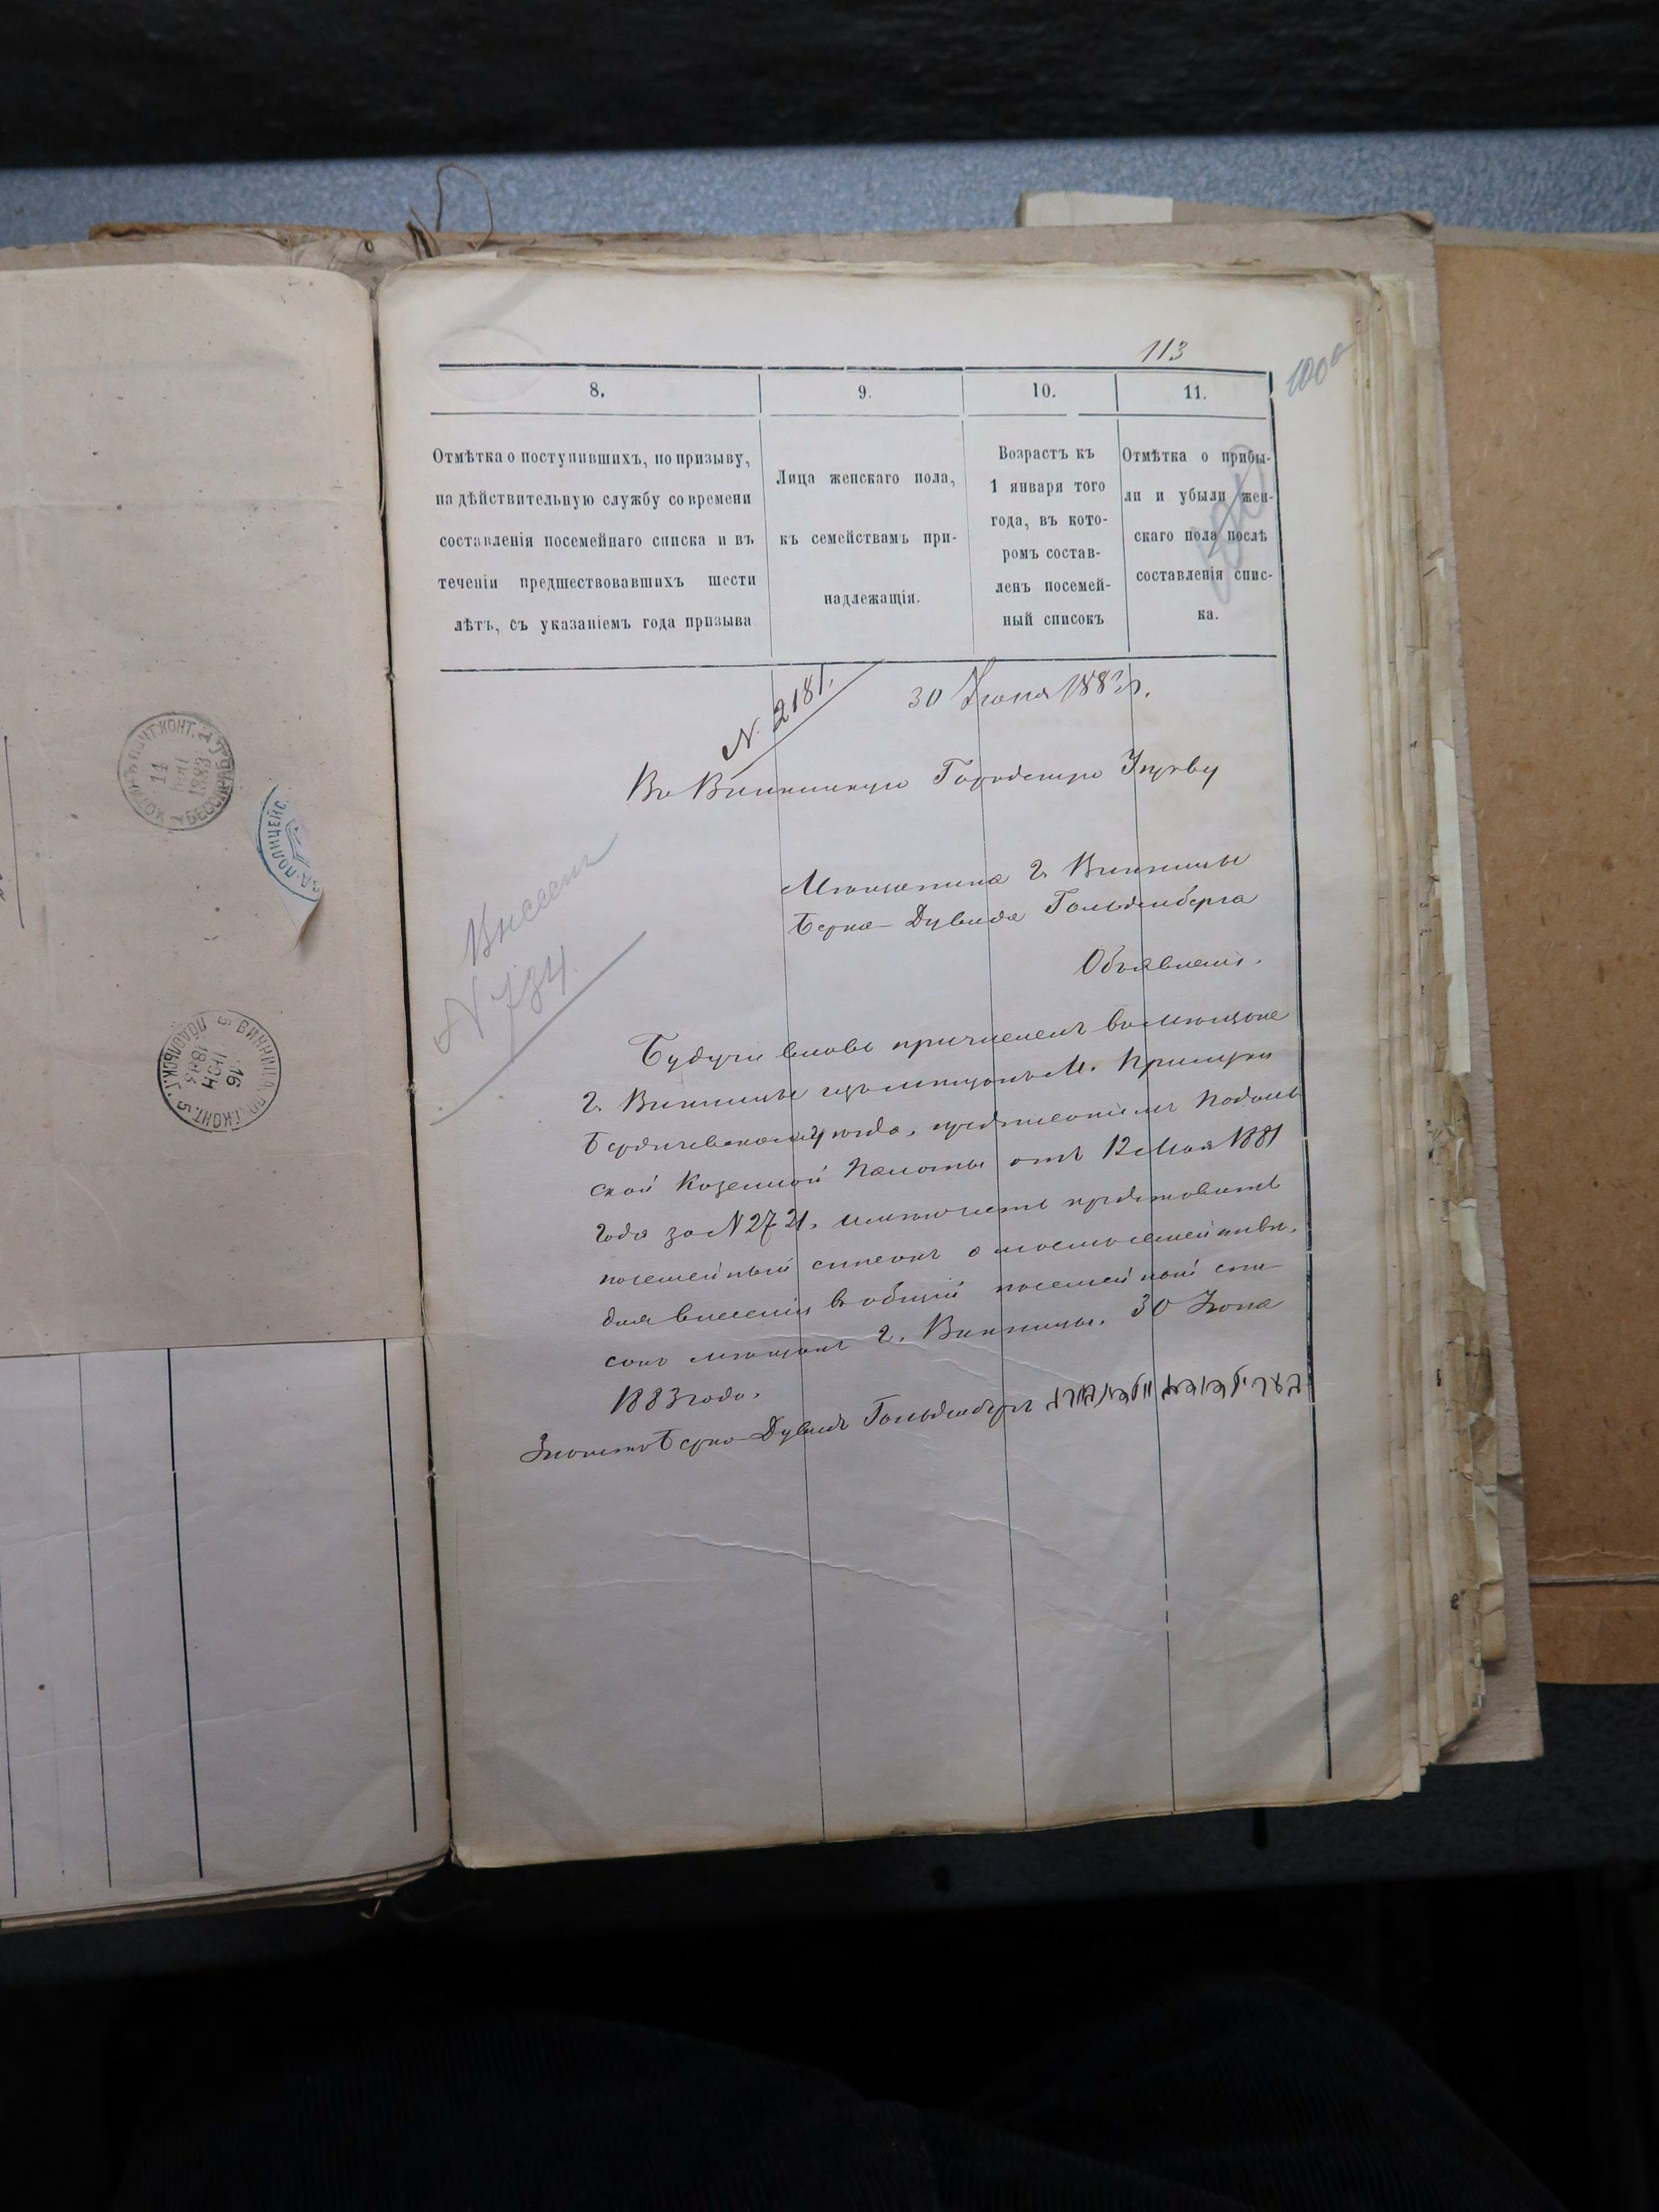 113
100
8.
9.
10.
11.
Отмѣтка о поступившихъ, по призыву,
на дѣйствительную службу со времени
составленія посемейнаго списка и въ
теченіи предшествовавшихъ шести
лѣтъ, съ указаніемъ года призыва
Лица женскаго пола,
къ семействамъ при-
надлежащія.
Возрастъ къ
1 января того
года, въ кото-
ромъ состав-
ленъ посемей-
ный списокъ
Отмѣтка о прибы-
ли и убыли жен-
скаго пола послѣ
составленія спис-
ка.
N. 2181.
30 Іюня 1883 г.
Въ Винницкую Городскую Управу
Мѣщанина г. Винницы
Берка-Дувида Гольденберга
Объявленіе.
Внесенъ
N 734.
Будучи вновь причисленъ въ мѣщане
г. Винницы изъ мѣщанъ м. Прилуки
Бердичевскаго уѣзда, предписаніемъ Подоль
ской Казенной Палаты отъ 12 Мая 1881
Года за N 2721, представить
посемейный списокъ о моемъ семействѣ,
для внесенія въ общій посемейный спи
сокъ мѣщанъ г. Винницы. 30 Іюня
1883 года.
Берко-Дувидъ Гольденбергъ
14
1883
ПОЛИЦЕЙС
ВИННИЦА ПОЧ. КОНТ. ПОДОЛЬСК. Г.
16
ІЮН
1883
5